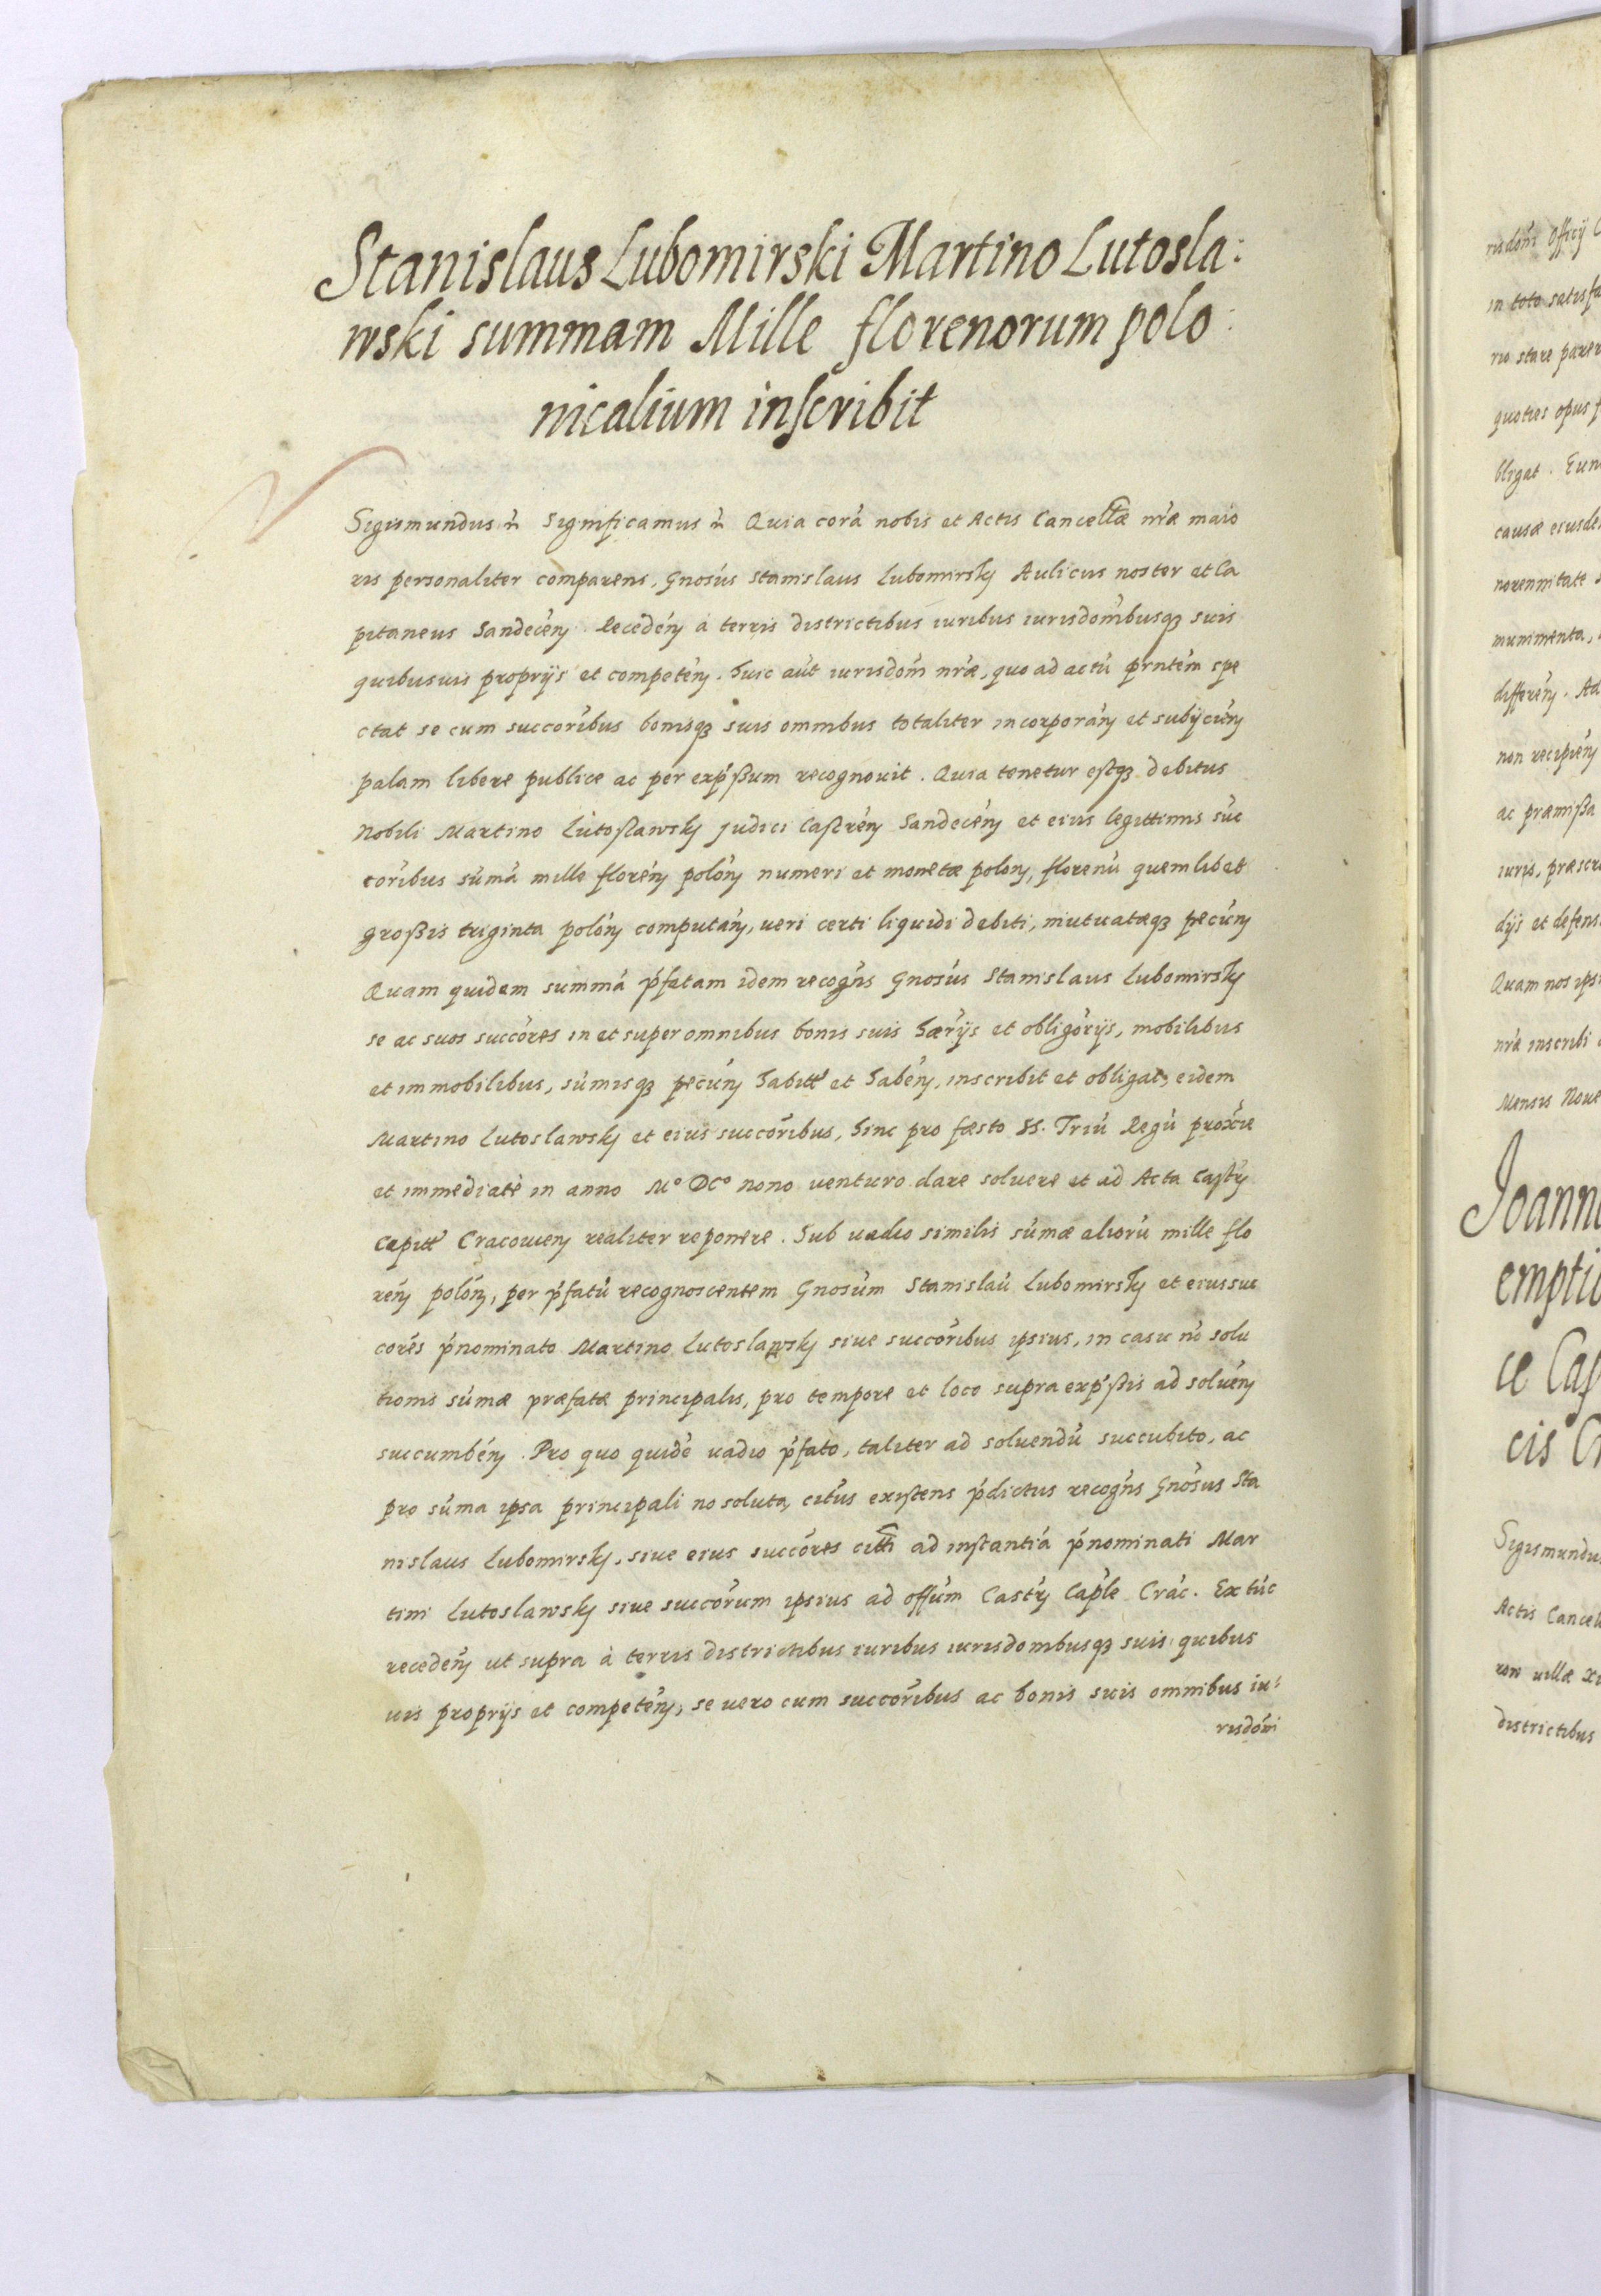 Stanislaus Lubomirski Martino Lutosla:
wski summam Mille florenorum polo:
nicalium inscribit
Sigismundus Significamus Quia corá nobis et Actis Cancellæ nræ maio
ris personaliter comparens, Gnosús Stanislaus Lubomirsky Aulicus noster et Ca
pitaneus Sandecén. Recedén á terris districtibus iuribus iurisdombusq suis
quibusuis proprijs et competén. huic aút iurisdom nræ, quo ad actú prntém spe
ctat se cum succoribus bonisq suis omnibus totaliter incorporán et subijcién
palam libere publice ac per exp'ßum recognouit. Quia tenetur estq debitus
Nobili Martino Lutoslawsky Judici Castrén Sandecén et eius legittimis suc
coribus súmá mille florén polón numeri et monetæ polon, florenú quemlibet
großis triginta polón compután, ueri certi liquidi debiti, mutuatæq pecún
Quam quidem summá p'fatam idem recogns Gnosús Stanislaus Lubomirsky
se ac suos succóres in et super omnibus bonis suis hærijs et obligorijs, mobilibus
et immobilibus, súmisq pecún habitt et habén, inscribit et obligat, eidem
Martino Lutoslawsky et eius succoribus, hinc pro fæsto SS. Triú Regú proxie
et immediaté in anno Mº DCº nono venturo dare soluere et ad Acta Castr
Capitt Cracouien realiter reponere. Sub uadio similis súmæ aliorú mille flo
rén polón, per p'fatú recognoscentem Gnosúm Stanislaú Lubomirsky et eius suc
corés p'nominato Martino Lutoslawsky siue succoribus ipsius, in casu nó solu
tionis súmæ præfatæ principalis, pro tempore et loco supra exp'ßis ad soluén
succumbén. Pro quo quidé uadio p'fato, taliter ad soluendú succubito, ac
pro súma ipsa principali no soluta, citús existens p'dictus recogns Gnosus Sta
nislaus Lubomirsky, siue eius succóres citti ad instantiá p'nominati Mar
tini Lutoslawsky siue succorum ipsius ad offúm Castr Caple Crác. Ex túc
recedén ut supra á terris districtibus iuribus iurisdombusq suis quibus
uis proprijs et competén, se uero cum succoribus ac bonis suis omnibus iu:
risdóni
risdóni Officij C
in toto satisfa
rio stare parer
quoties opus f
bligat. Eun
causæ eiusde
norennitate
munimenta,
differén. Ad
non recipién
ac præmißa
iuris, præscri
dijs et defens
Quam nos ipsi
nrá inscribi
Mensis Noue
Joanne
emptio
ce Cap
cis Cr
Sigismundu
Actis Cancell
ron uillæ
districtibus